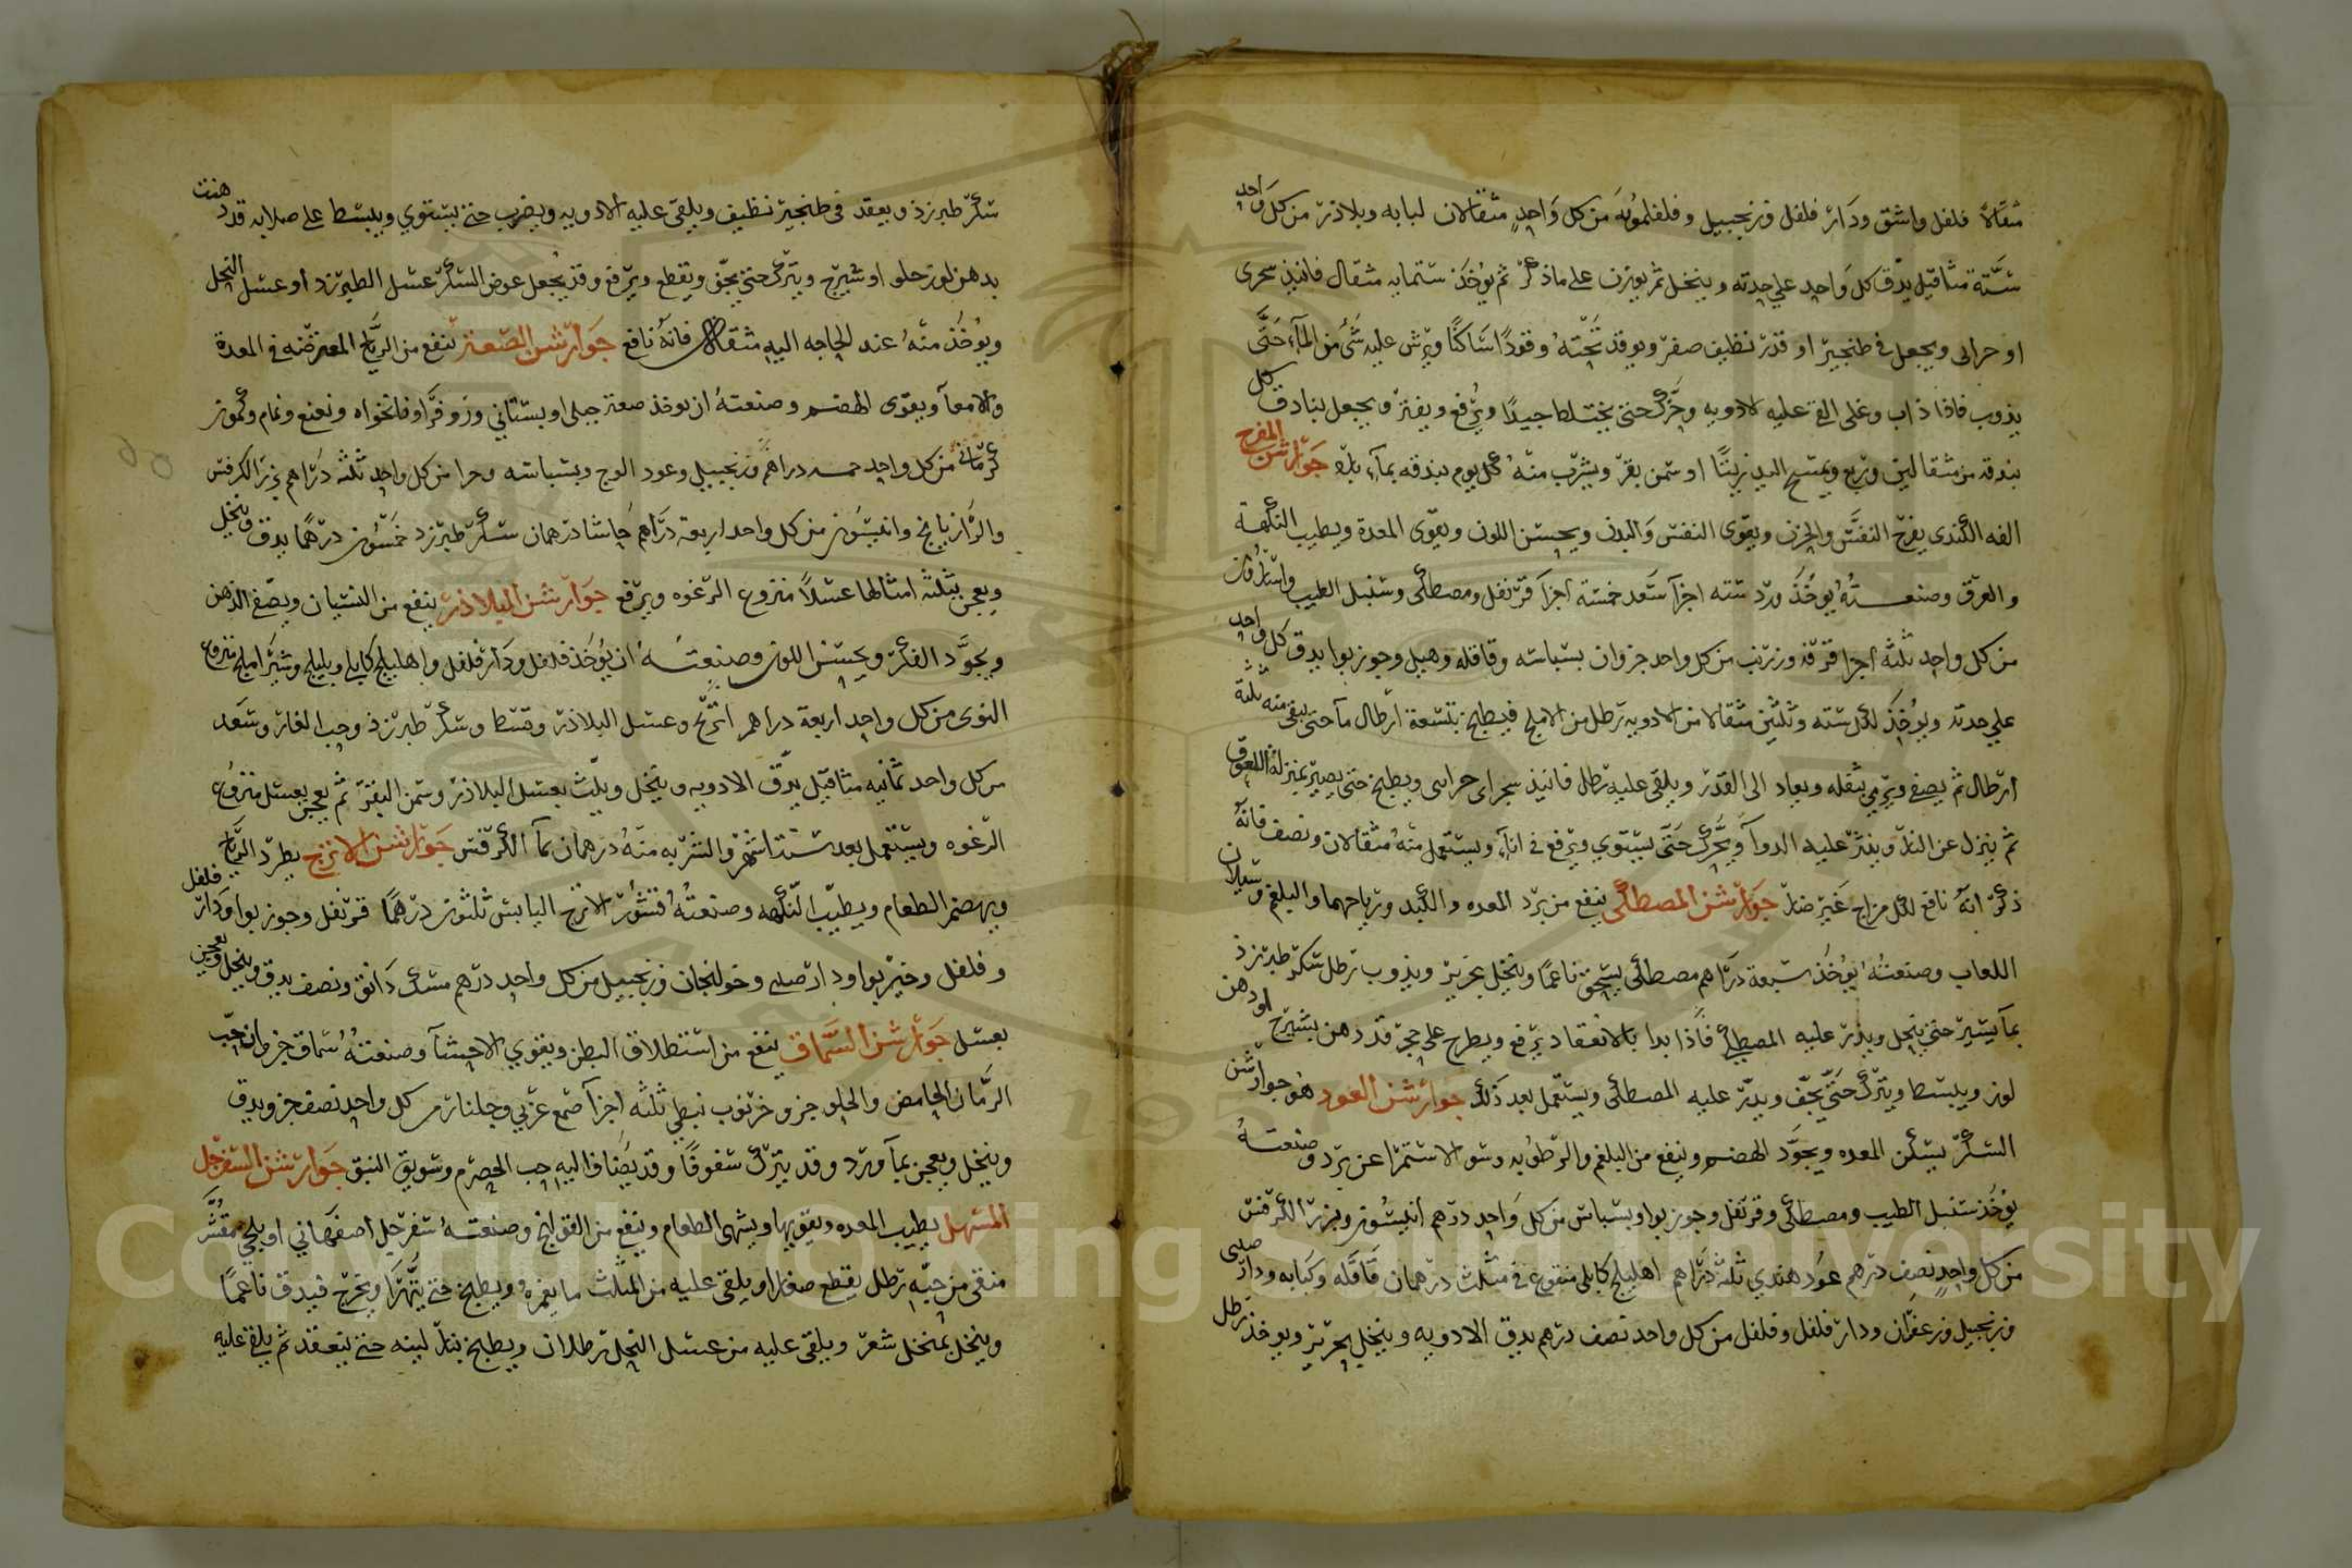 مثقالا فلفل واشق ودار فلفل وزنجبيل وفلفلمويه من كل واحد مثقالان لبابه وبلاذر من كل واحد
ستة مثاقيل يدق كل واحد علي حدته وينخل ثم يوزن على ماذكر ثم يوخذ ستمايه مثقال فانيذ سجزى
او حرابى ويجعل في طنجير او قدر نظيف صفر ويوقد تحته وقودًا ساكنًا ويرش عليه شئ من المآء حتى
يذوب فاذا ذاب وغلى القى عليه الادويه وحرك حتى يختلط جيدًا ويرفع ويفتر ويجعل بنادق كل
بندقه من مثقالين وربع ويمسح اليد زيتًا او سمن بقر ويشرب منه كل يوم بندقه بمآء بارد جوارشن المفرح
الفه الكندى يفرح النفس والحزن ويقوى النفس والبدن ويحسن اللون ويقوى المعدة ويطيب النكهة
والعرق وصنعته يوخذ ورد سته اجزآ سعد خمسة اجزآ قرنفل ومصطكى وسنبل الطيب واسارون
من كل واحد ثلثه اجزا قرفه وزرنب من كل واحد جزوان بسباسه وقاقله وهيل وجوزبوا يدق كل واحد
علي حدته ويوخذ لكل سته وثلثين مثقالا من الادويه رطل من الاملج فيطبخ بتسعة ارطال مآ حتى يبقى منه ثلثة
ارطال ثم يصفى ويرمي بثقله ويعاد الى القدر ويلقى عليه رطل فانيذ سجزاى حراسى ويطبخ حتى يصير بمنزلة اللعوق
ثم ينزل عن النار وينثر عليه الدوآ ويحرك حتى يستوي ويرفع في انآء ويستعمل منه مثقالان ونصف فانه
ذكر انه نافع لكل مزاج غير ضار جوارشن المصطكى ينفع من برد المعده والكبد ورياحهما والبلغم وسيلان
اللعاب وصنعته يوخذ سبعة دراهم مصطكى يسحق ناعمًا وينخل بحرير ويذوب رطل سكر طبرزذ
بمآ يسير حتى ينحل ويذر عليه المصطكى فاذا بدا بالانعقاد يرفع ويطرح على حجر قد دهن بشيرج او دهن
لوز ويبسط ويترك حتى يجف ويدبر عليه المصطكى ويستعمل بعد ذلك جوارشن العود هو جوارشن
السكر يسكن المعده ويجود الهضم وينفع من البلغم والرطوبه وسو الاستمرا عن برد وصنعته
يوخذ سنبل الطيب ومصطكى وقرنفل وجوزبوا وبسباس من كل واحد درهم انيسون وبزر الكرفس
من كل واحد نصف درهم عود هندي ثلثة دراهم اهليلج كابلى منقوع في مثلث درهمان قاقله وكبابه ودارصينى
وزنجبيل وزعفران ودار فلفل وفلفل من كل واحد نصف درهم يدق الادويه وينخل بحرير ويوخذ رطل
سكر طبرزذ ويعقد في طنجير نظيف ويلقى عليه الادويه ويضرب حتى يستوي ويبسط على صلايه قد دهنت
بدهن لوز حلو او شيرج ويترك حتى يجف ويقطع ويرفع وقد يجعل عوض السكر عسل الطبرزد او عسل النحل
ويوخذ منه عند الحاجه اليه مثقال فانه نافع جوارشن الصعتر ينفع من الرياح المعترضه في المعدة
والامعآ ويقوى الهضم وصنعته ان يوخذ صعتر جبلى او بستاني وزوفرا ونانخواه ونعنع ونمام وكمون
كرمانى من كل واحد خمسه دراهم زنجبيل وعود الوج وبسباسه من كل واحد ثلثه دراهم بزر الكرفس
والرازيانج وانيسون من كل واحد اربعة دراهم حاشا درهمان سكر طبرزد خمسون درهمًا يدق وينخل
ويعجن بثلثه امثالها عسلاً منزوع الرغوه ويرفع جوارشن البلاذر ينفع من النسيان ويصفى الذهن
ويجود الفكر ويحسن اللون وصنعته ان يوخذ فلفل ودار فلفل واهليلج كابلي وبليلج وشير املج منزوع
النوى من كل واحد اربعة دراهم اترج وعسل البلاذر وقسط وسكر طبرزذ وحب الغار وسعد
من كل واحد ثمانيه مثاقيل يدق الادويه وينخل ويلت بعسل البلاذر وسمن البقر ثم يعجن بعسل منزوع
الرغوه ويستعمل بعد ستة اشهر والشربه منه درهمان بمآ الكرفس جوارشن الاترج يطرد الرياح
ويهضم الطعام ويطيب النكهه وصنعته قشور الاترج اليابس ثلثون درهمًا قرنفل وجوزبوا ودار فلفل
وفلفل وخيربوا ودارصينى وخولنجان وزنجبيل من كل واحد درهم مسك دانق ونصف يدق وينخل ويعجن
بعسل جوارشن السماق ينفع من استطلاق البطن ويقوي الاحشآ وصنعته سماق جزوان حب
الرمان الحامض والحلو جزو خرنوب نبطي ثلثه اجزآ صمغ عربي وجلنار من كل واحد نصف جزو يدق
وينخل ويعجن بمآ ورد وقد يترك سفوفًا وقد يضاف اليه حب الحصرم وسويق النبق جوارشن السفرجل
المسهل يطيب المعده ويقويها ويشهى الطعام وينفع من القولنج وصنعته سفرجل اصفهاني او بلحي مقشر
منقى من حبه رطل يقطع صغارا ويلقى عليه من المثلث ما يغمره ويطبخ حتى يتهرا ويخرج فيدق ناعمًا
وينخل بمنخل شعر ويلقى عليه من عسل النحل رطلان ويطبخ بنار لينه حتى ينعقد ثم يلقى عليه
Copyright © King Saud University
1957